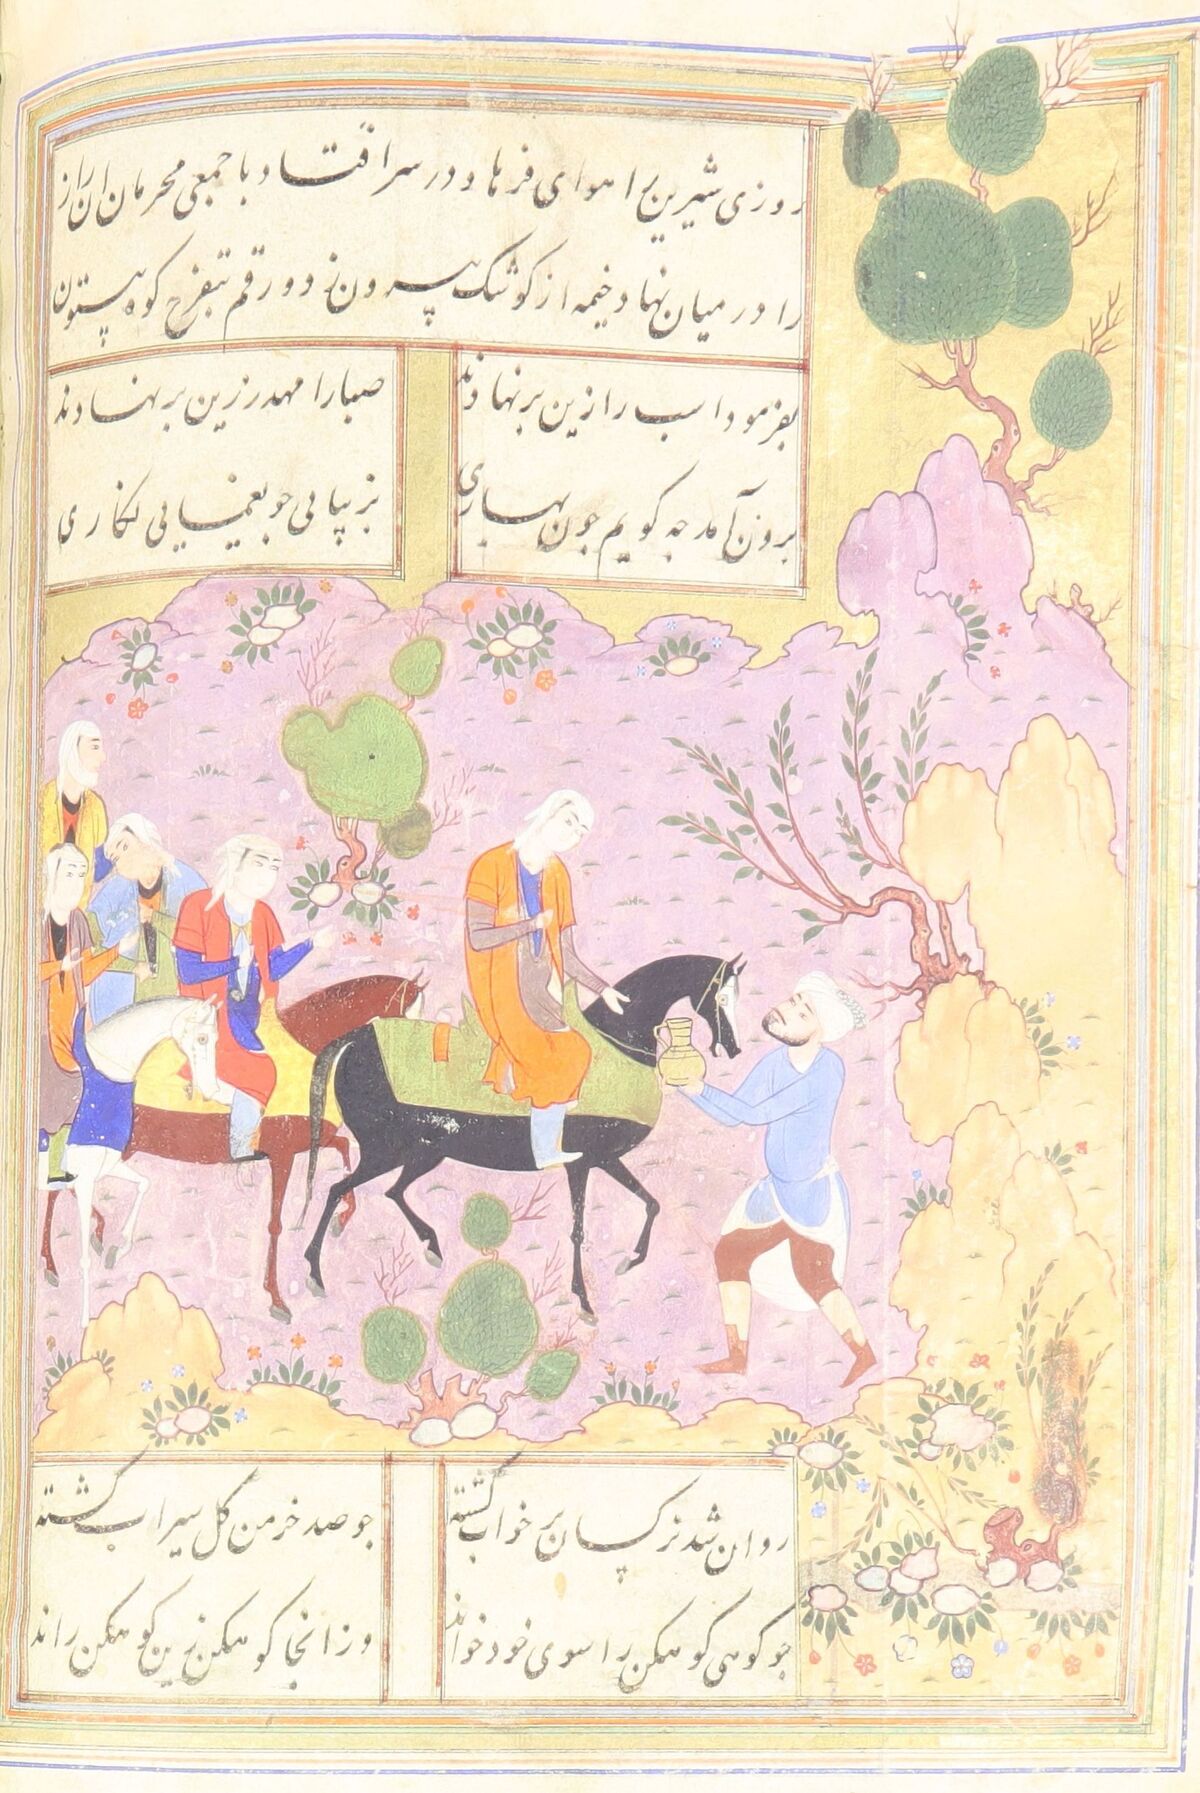 روزی شیرین را هوای فرهاد در سر افتاد با جمعی محرمان این راز
را در میان نهاد خیمه از کوشک بیرون زد و رقم تفرج کوه بیستون
بفرمود اسب را زین بر نهادند
صبا را مهد زرین بر نهادند
برون آمد جه کویم جون بهاری
بزیبایی جو یغمایی نکاری
روان شد نرکسان پر خواب کشته
جو صد خرمن کل سیراب کشته
جو کوهی کوهکن را سوی خود خواند
وزانجا کوهکن زین کوهکن راند